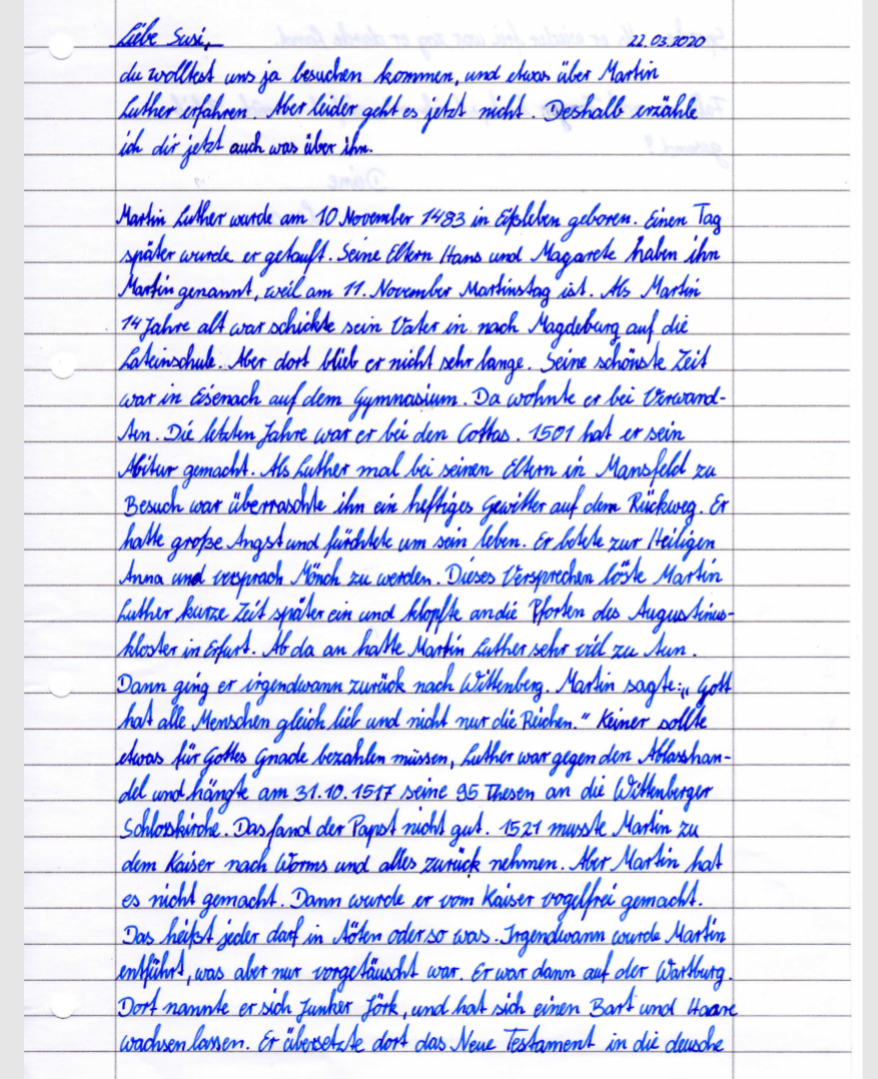 Liebe Susi, 22.03.2020
du wolltest uns ja besuchen kommen, und etwas über Martin
Luther erfahren. Aber leider geht es jetzt nicht. Deshalb erzähle
ich dir jetzt auch was über ihn.
Martin Luther wurde am 10 November 1483 in Eißleben geboren. Einen Tag
später wurde er getauft. Seine Eltern Hans und Magarete haben ihn
Martin genannt, weil am 11. November Martinstag ist. Als Martin
14 Jahre alt war schickte sein Vater in nach Magdeburg auf die
Lateinschule. Aber dort blieb er nicht sehr lange. Seine schönste Zeit
war in Eisenach auf dem Gymnasium. Da wohnte er bei Verwand-
ten. Die letzten Jahre war er bei den Cottas. 1501 hat er sein
Abitur gemacht. Als Luther mal bei seinen Eltern in Mansfeld zu
Besuch war überraschte ihn ein heftiges Gewitter auf dem Rückweg. Er
hatte große Angst und fürchtete um sein leben. Er betete zur Heiligen
Anna und versprach Mönch zu werden. Dieses Versprechen löste Martin
Luther kurze Zeit später ein und klopfte an die Pforten des Augustinus-
kloster in Erfurt. Ab da an hatte Martin Luther sehr viel zu tun.
Dann ging er irgendwann zurück nach Wittenberg. Martin sagte: „Gott
hat alle Menschen gleich lieb und nicht nur die Reichen." Keiner sollte
etwas für Gottes Gnade bezahlen müssen, Luther war gegen den Ablasshan-
del und hängte am 31.10.1517 seine 95 Thesen an die Wittenberger
Schlosskirche. Das fand der Papst nicht gut. 1521 musste Martin zu
dem Kaiser nach Worms und alles zurück nehmen. Aber Martin hat
es nicht gemacht. Dann wurde er vom Kaiser vogelfrei gemacht.
Das heißt jeder darf in töten oder so was. Irgendwann wurde Martin
entführt, was aber nur vorgetäuscht war. Er war dann auf der Wartburg.
Dort nannte er sich Junker Jörk, und hat sich einen Bart und Haare
wachsen lassen. Er übersetzte dort das Neue Testament in die deusche